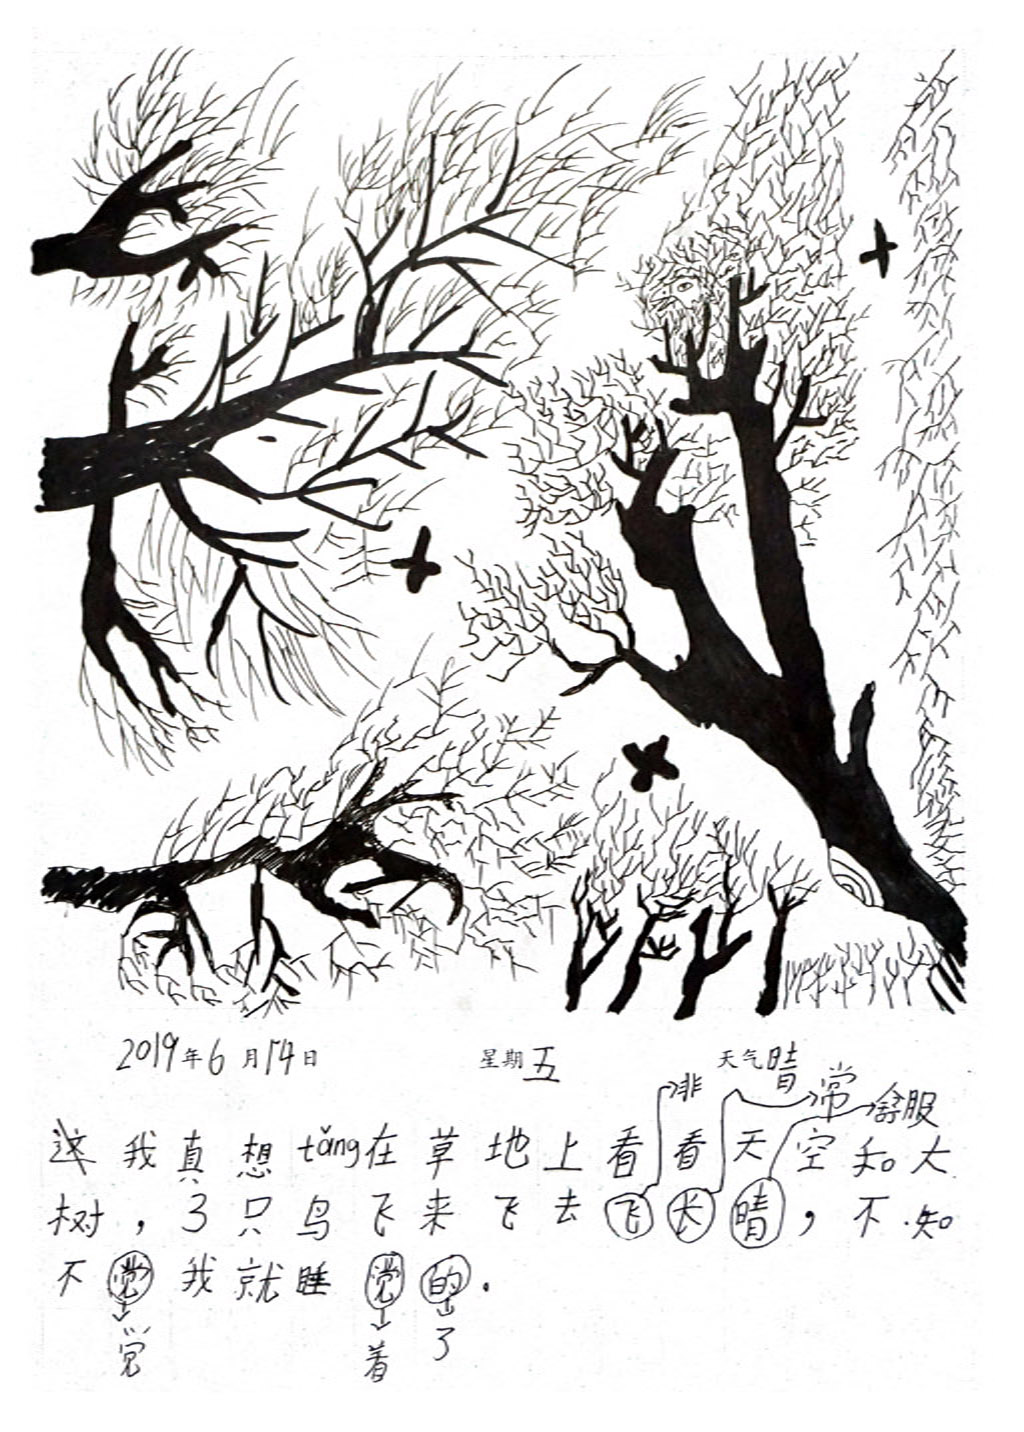 2019年6月14日 星期五 天气晴
啡 常 舒服
这 我真想tǎng在草地上看看天空和大
树，3只鸟飞来飞去飞长晴，不知
不觉我就睡觉的.
觉 着 了